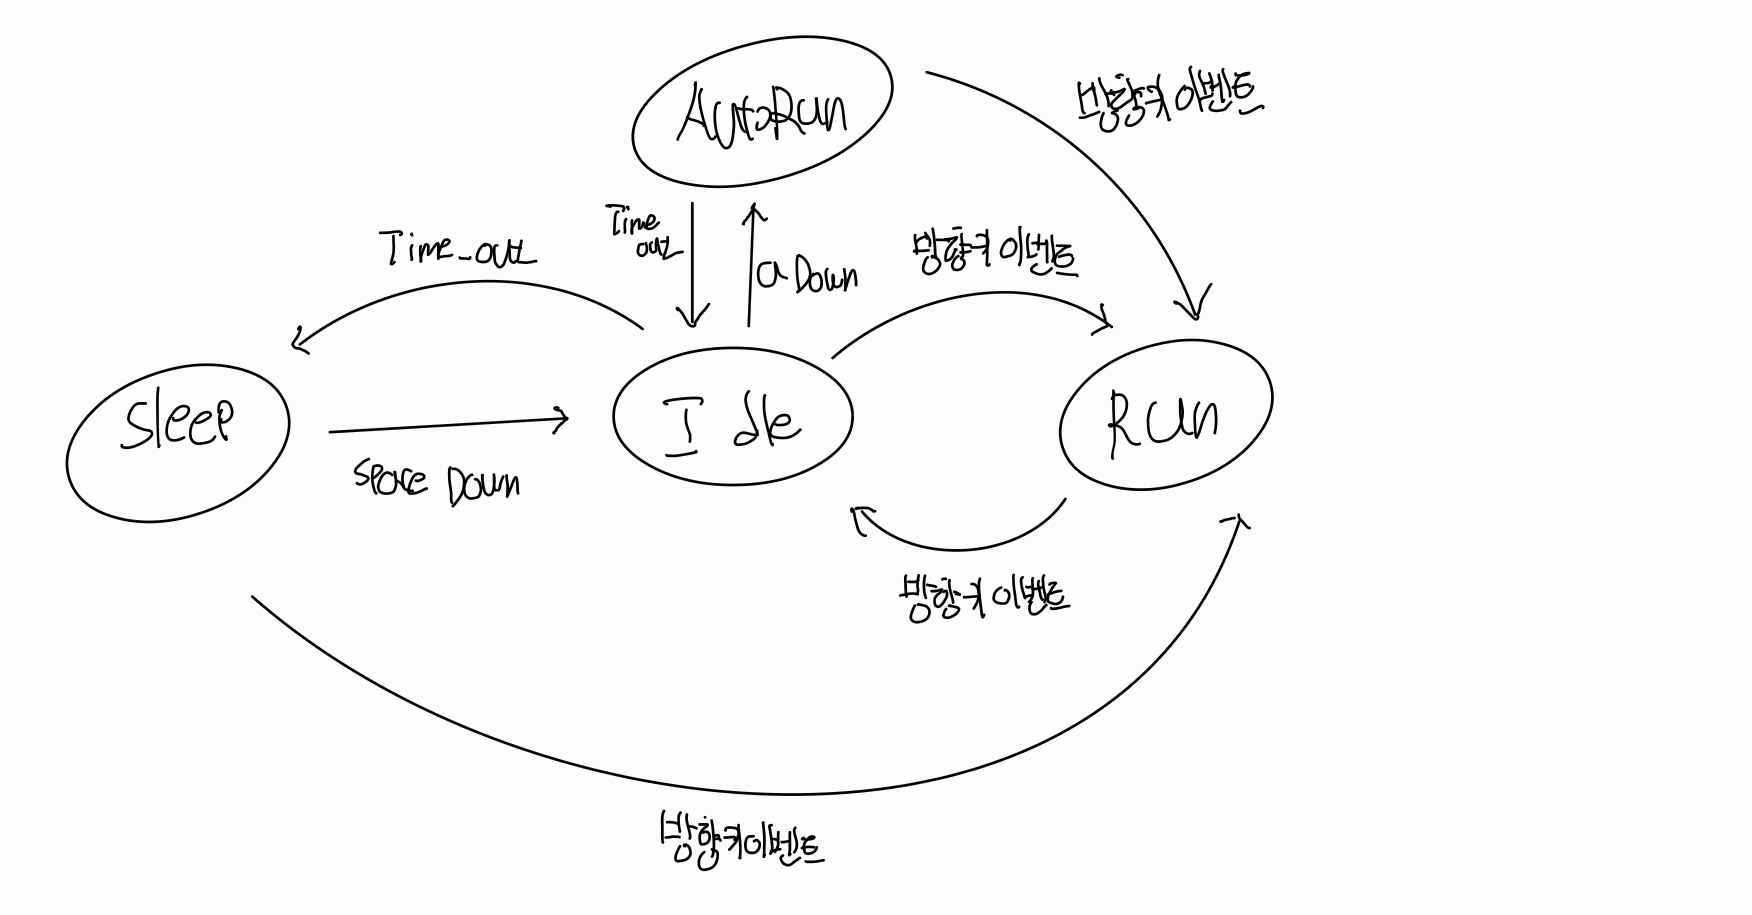 AutoRun
방향키 이벤트
Time
out
a Down
Time_out
방향키 이벤트
Sleep
Idle
Run
Space Down
방향키 이벤트
방향키 이벤트